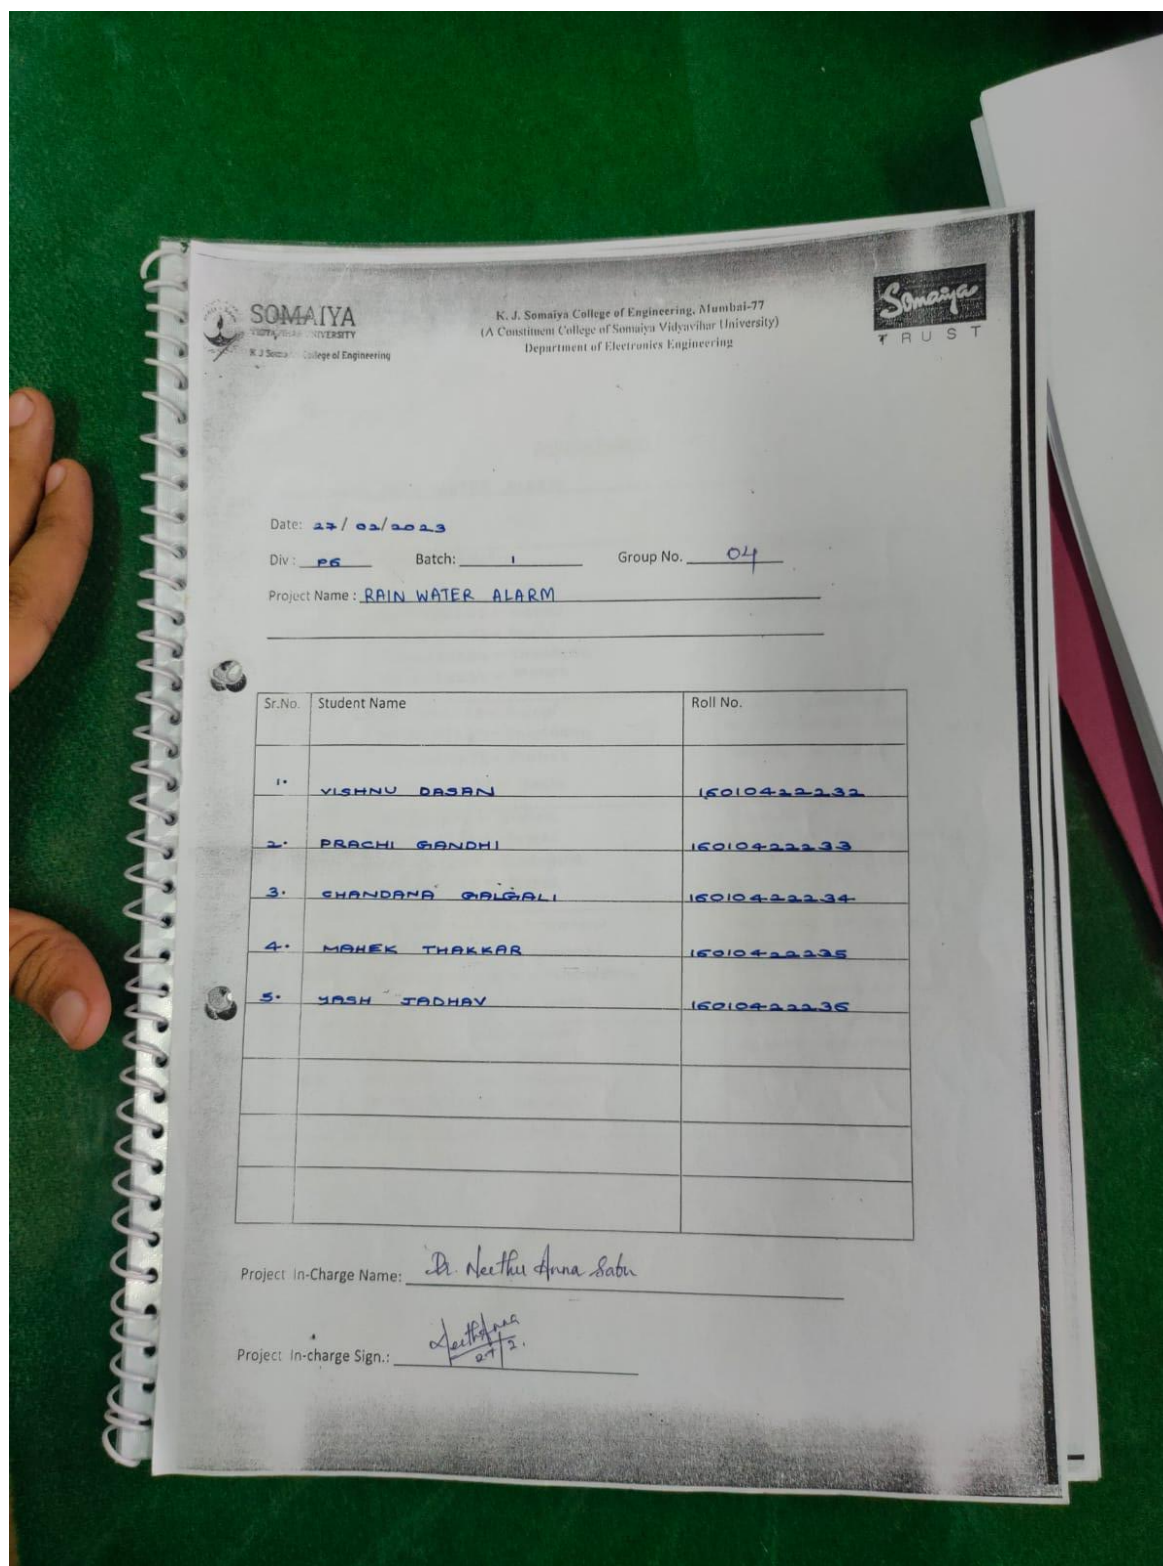 SOMAIYA
VIDYAVIHAR UNIVERSITY
K J Somaiya College of Engineering
K. J. Somaiya College of Engineering, Mumbai-77
(A Constituent College of Somaiya Vidyavihar University)
Department of Electronics Engineering
Somaiya
TRUST
Date: 27/02/2023
Div: P6 Batch: 1 Group No. 04
Project Name: RAIN WATER ALARM
Sr.No. Student Name Roll No.
1. VISHNU DASAN 16010422232
2. PRACHI GANDHI 16010422233
3. CHANDANA GALGALI 16010422234
4. MAHEK THAKKAR 16010422235
5. YASH JADHAV 16010422236
Project In-Charge Name: Dr. Neethu Anna Sabu
Project In-charge Sign.: 27/2.